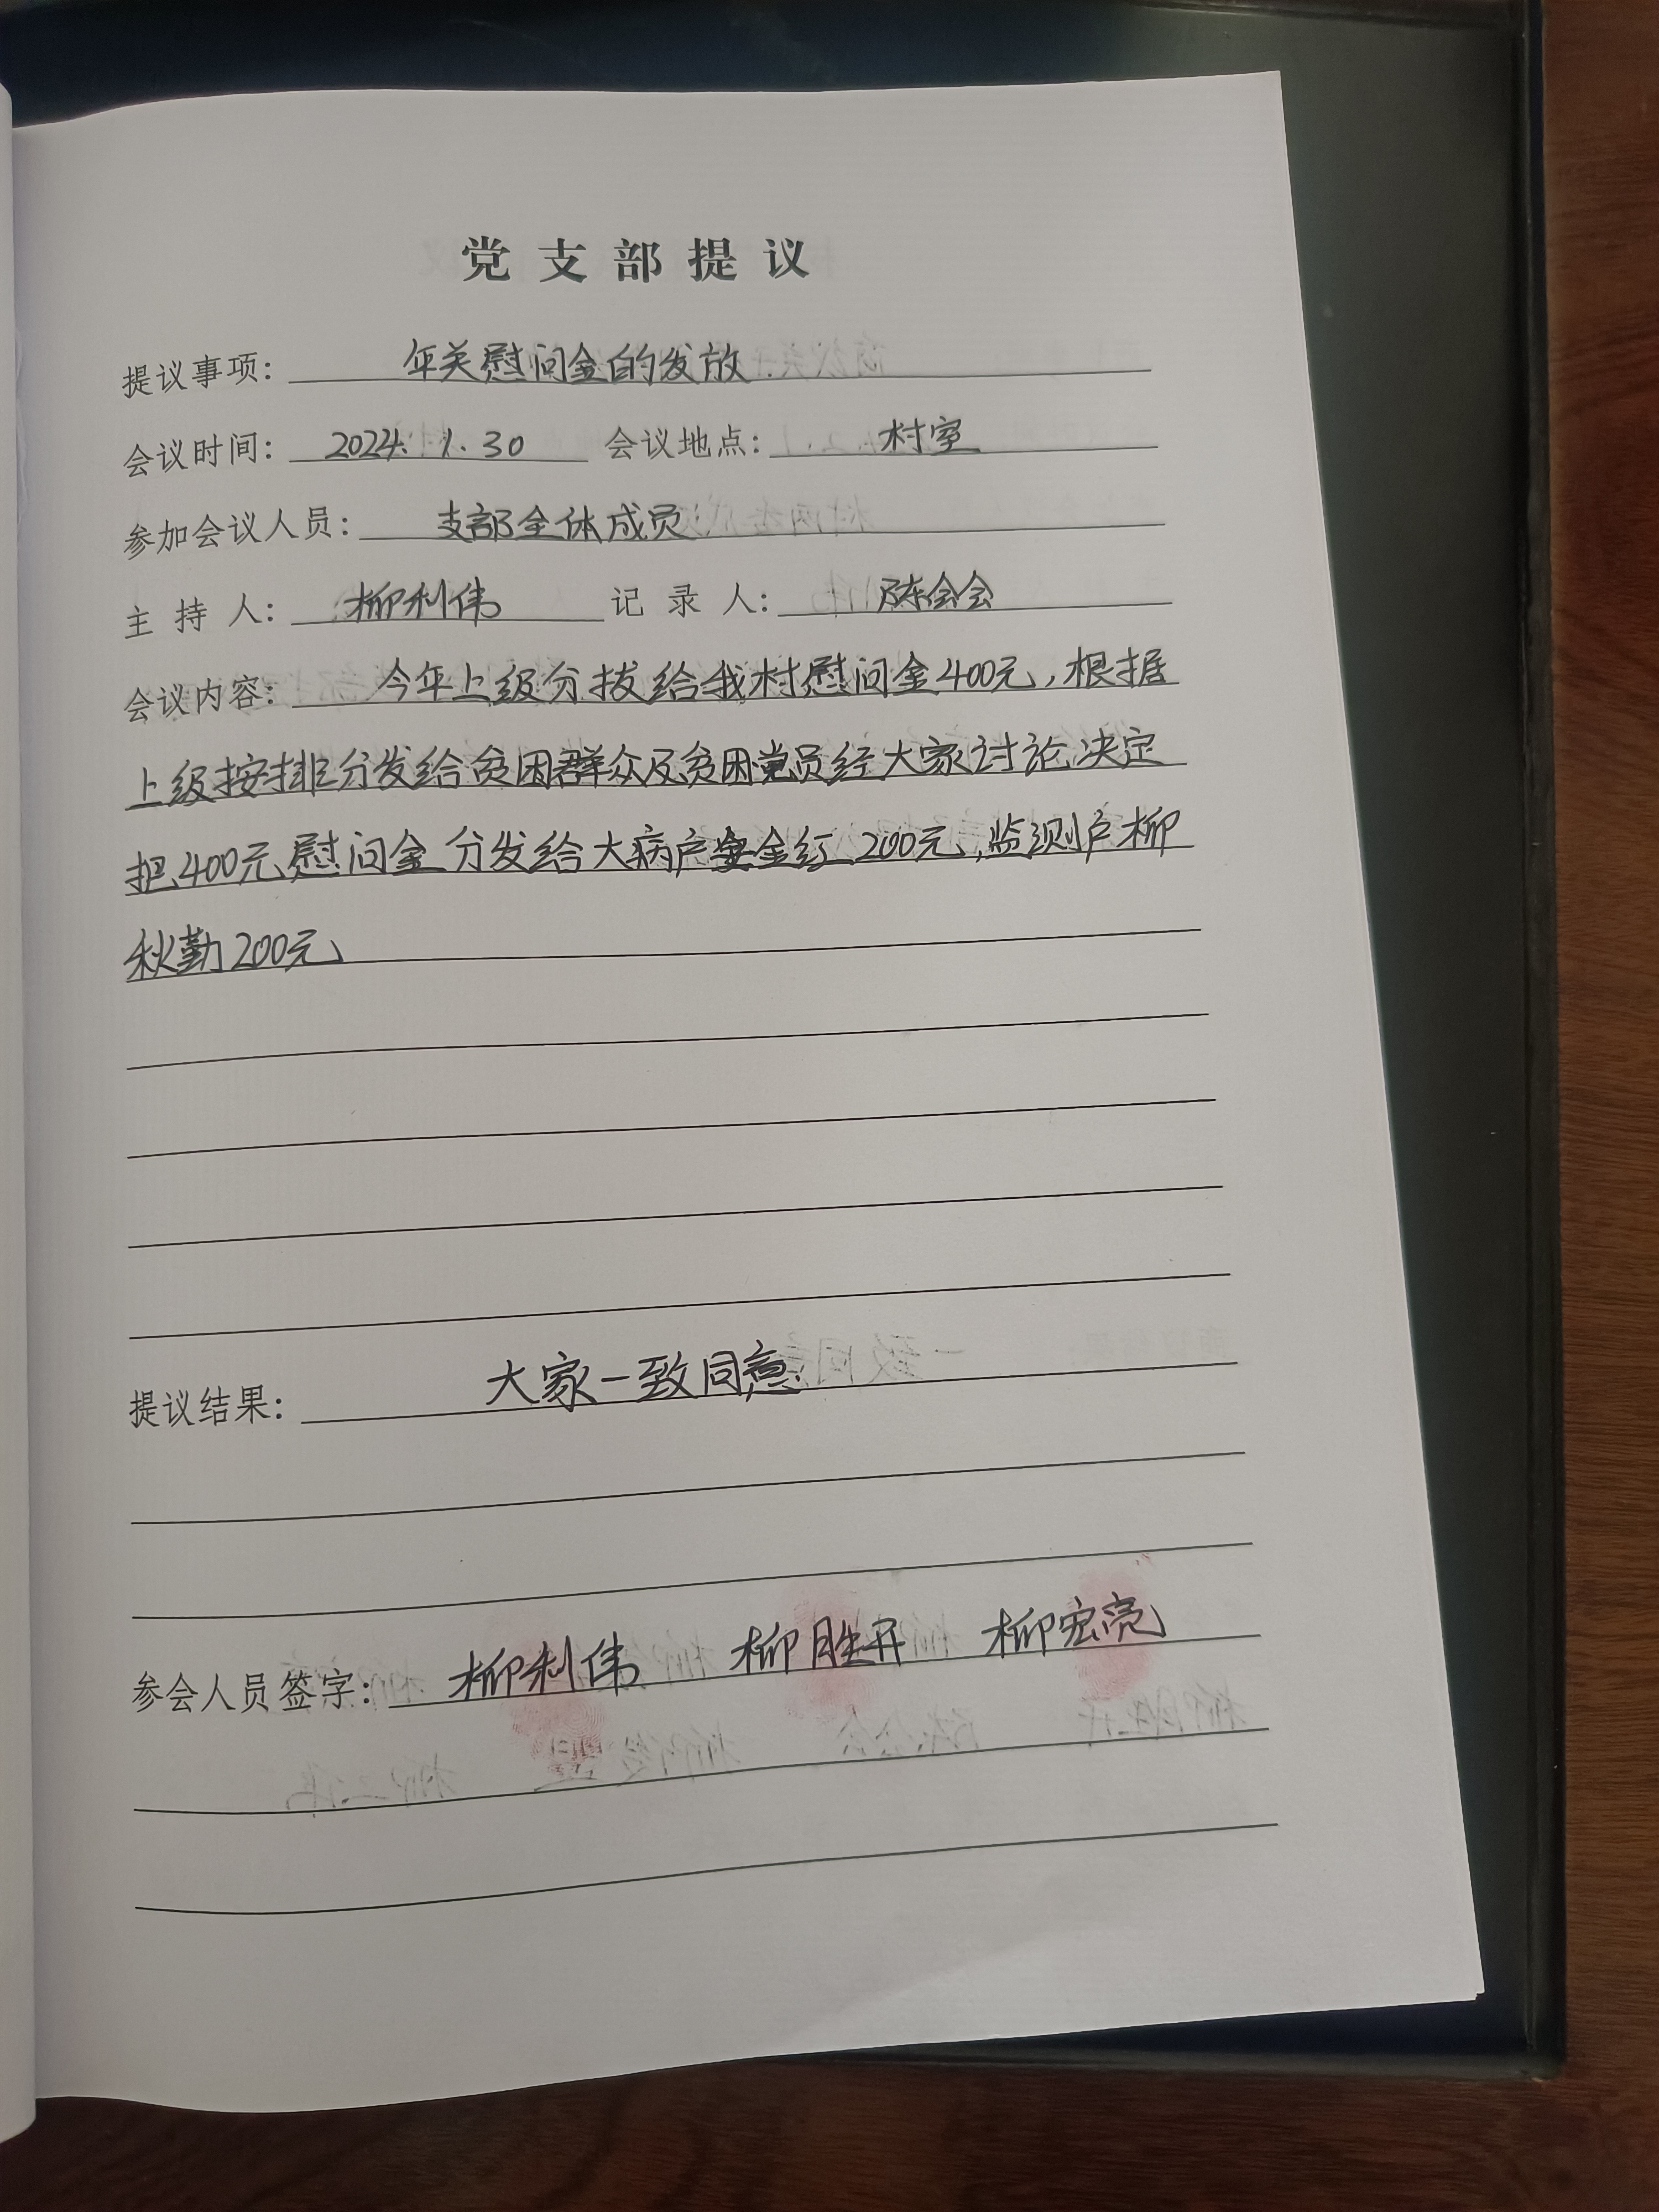 党支部提议
提议事项： 年关慰问金的发放.
会议时间： 2024.1.30 会议地点： 村室
参加会议人员： 支部全体成员
主持人： 柳利伟 记录人： 陈会会
会议内容： 今年上级分拔给我村慰问金400元，根据
上级按排分发给贫困群众及贫困党员经大家讨论决定
把400元慰问金分发给大病户金红200元，监测户柳
秋勤200元、
提议结果： 大家一致同意.
参会人员签字： 柳利伟 柳胜开 柳宏亮